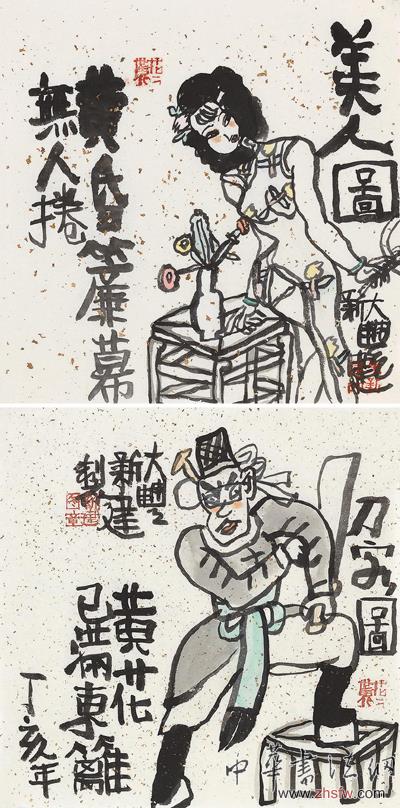 美人圖
大豐
新
黄昏簾幕
無人捲
刀客圖
大豐
新建
製
黄花
已滿東籬
丁亥年
中華書法網
www.zhsfw.com